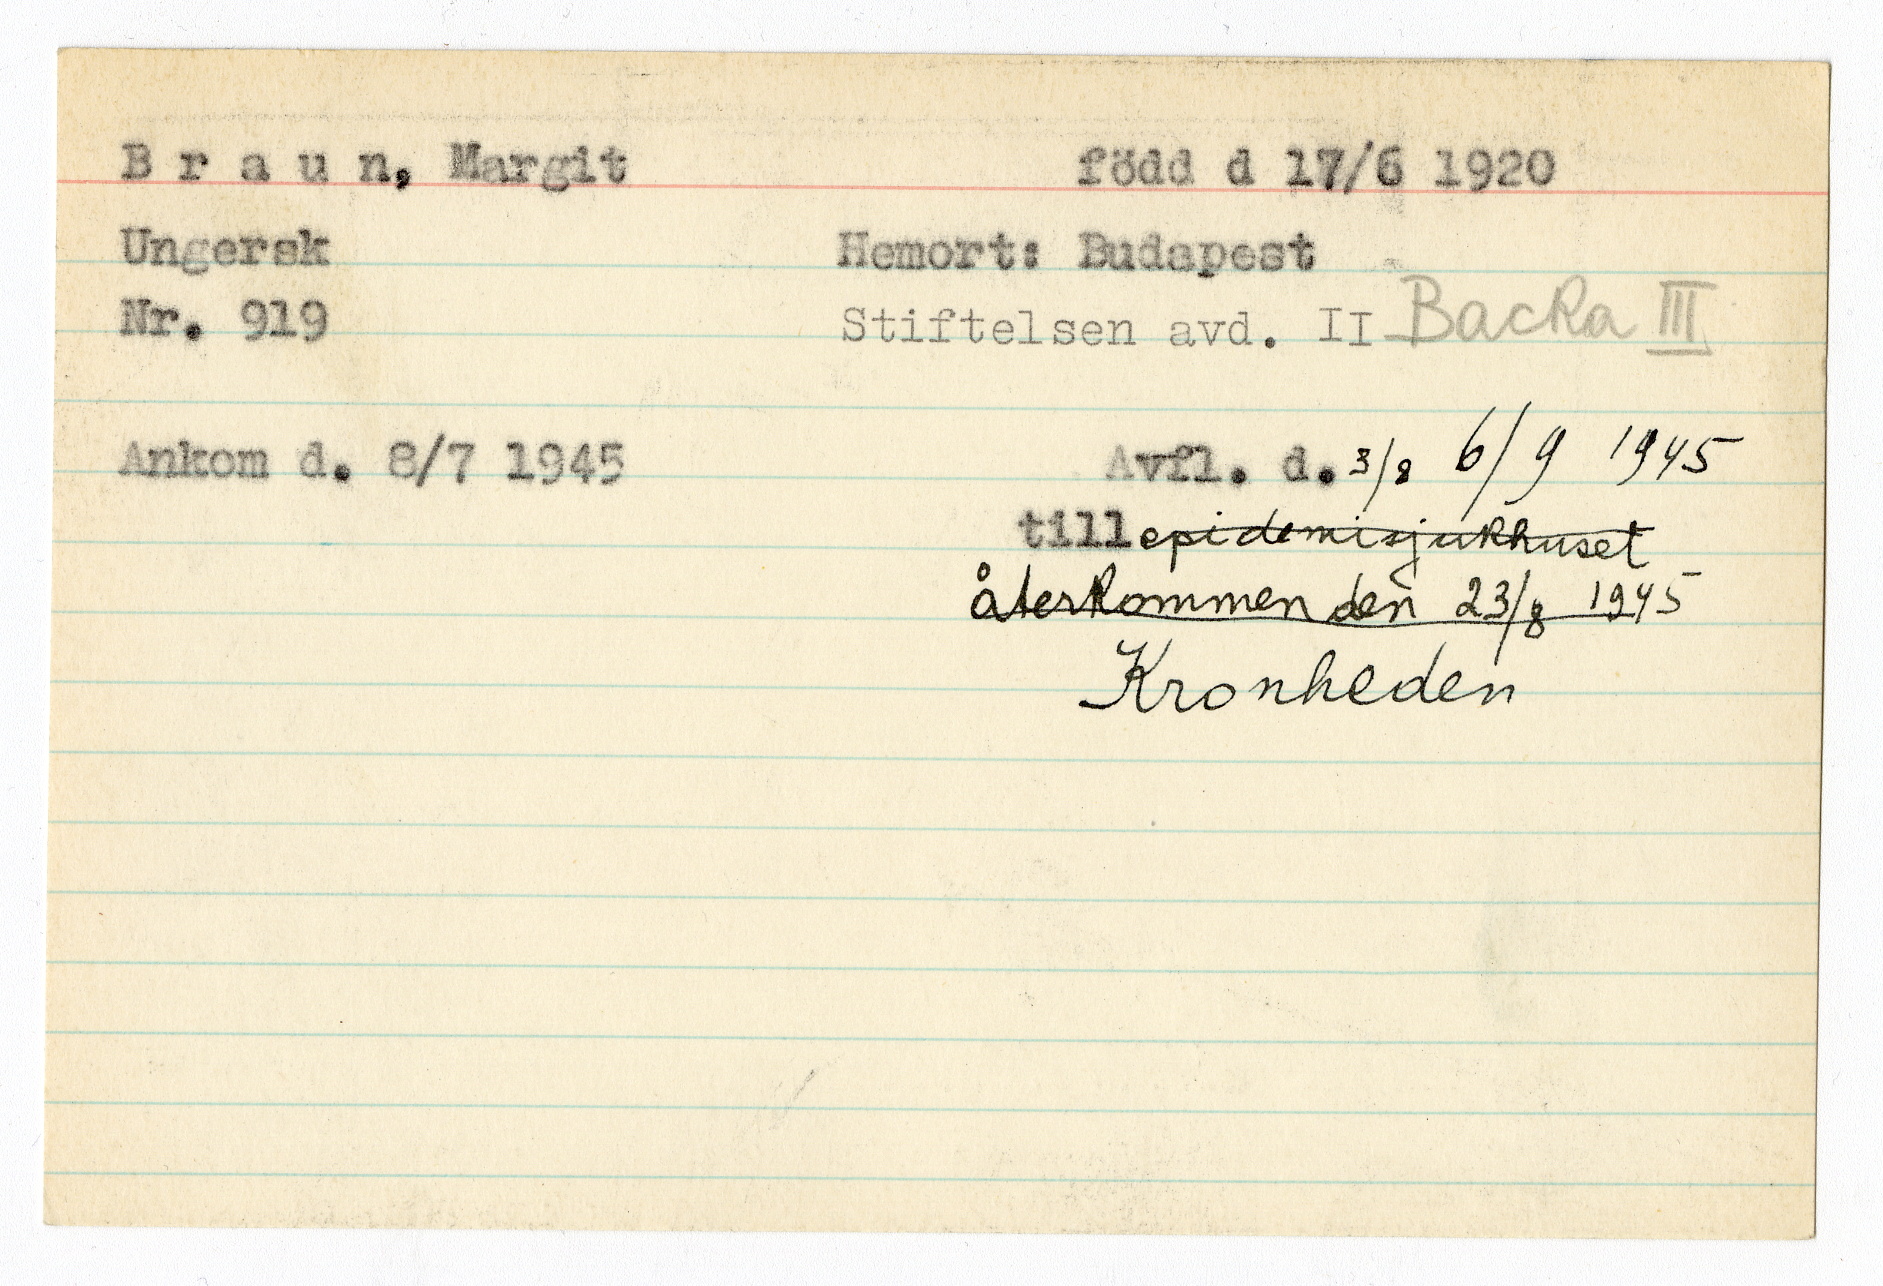 B r a u n, Margit född d 17/6 1920
Ungersk Hemort: Budapest
Nr. 919 Stiftelsen avd. II Backa III
Ankom d. 8/7 1945 Avfl. d. 3/8 6/9 1945
till epidemisjukhuset
återkommen den 23/8 1945
Kronheden